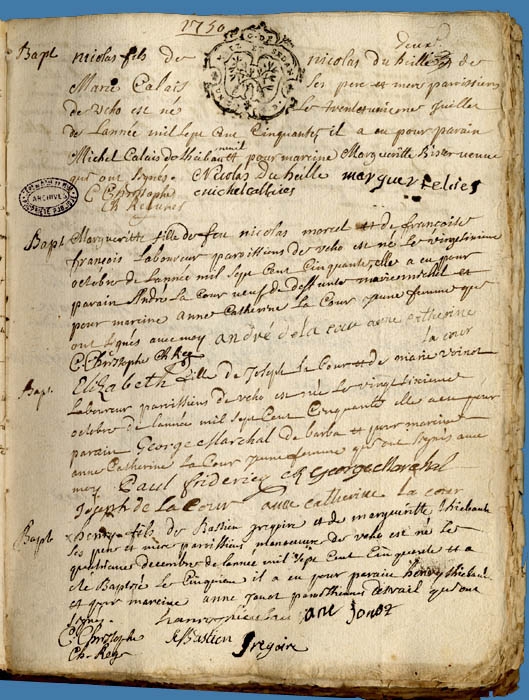 1750
deux
Bapt nicolas fils de nicolas du heille et de
Marie Calais ses pere et mere parrissiens
de veho est né le trente unieme juillet
de Lannée mil sept Cent Cinquante il a eu pour parain
Michel Calais de thiebau et pour mareine Margueritte
qui ont signes. Nicolas du heille marguer
C. Christophe michel calaies
ARCHIVES
Bapt Margueritte fille de feu nicolas morel et de françoise
françois Laboureur parrissiens de veho est né le vingtsixieme
octobre de Lannée mil sept Cent Cinquante, elle a eu pour
parain André La Cour neuf de et
pour mareine anne Catherine La Cour jeune femme qui
ont signés avec moy andré de la cour anne catherine
C. Christophe Ch. Reg. la cour
Bapt. Elizabeth fille de Joseph la Cour et de marie voinot
Laboureur parrissiens de veho est né le vingtsixieme
octobre de Lannée mil sept Cent Cinquante elle a eu pour
parain George Marchal de barba et pour mareine
anne Catherine La Cour jeune femme qui ont signés avec
moy Paul fridericy CR George Marchal
Joseph de La Cour anne catherine la cour
Bapt henry fils de Bastien gregoire et de margueritte thiebaut
ses pere et mere parrissiens manoeuvre de veho est né le
quatrieme decembre de Lannée mil sept Cent Cinquante et a
été Baptizé le Cinquieme il a eu pour parain henry thiebau
et pour mareine anne jonot qui ont
signes. ane Jonot
C. Christophe Bastien gregoire
Ch. Reg.